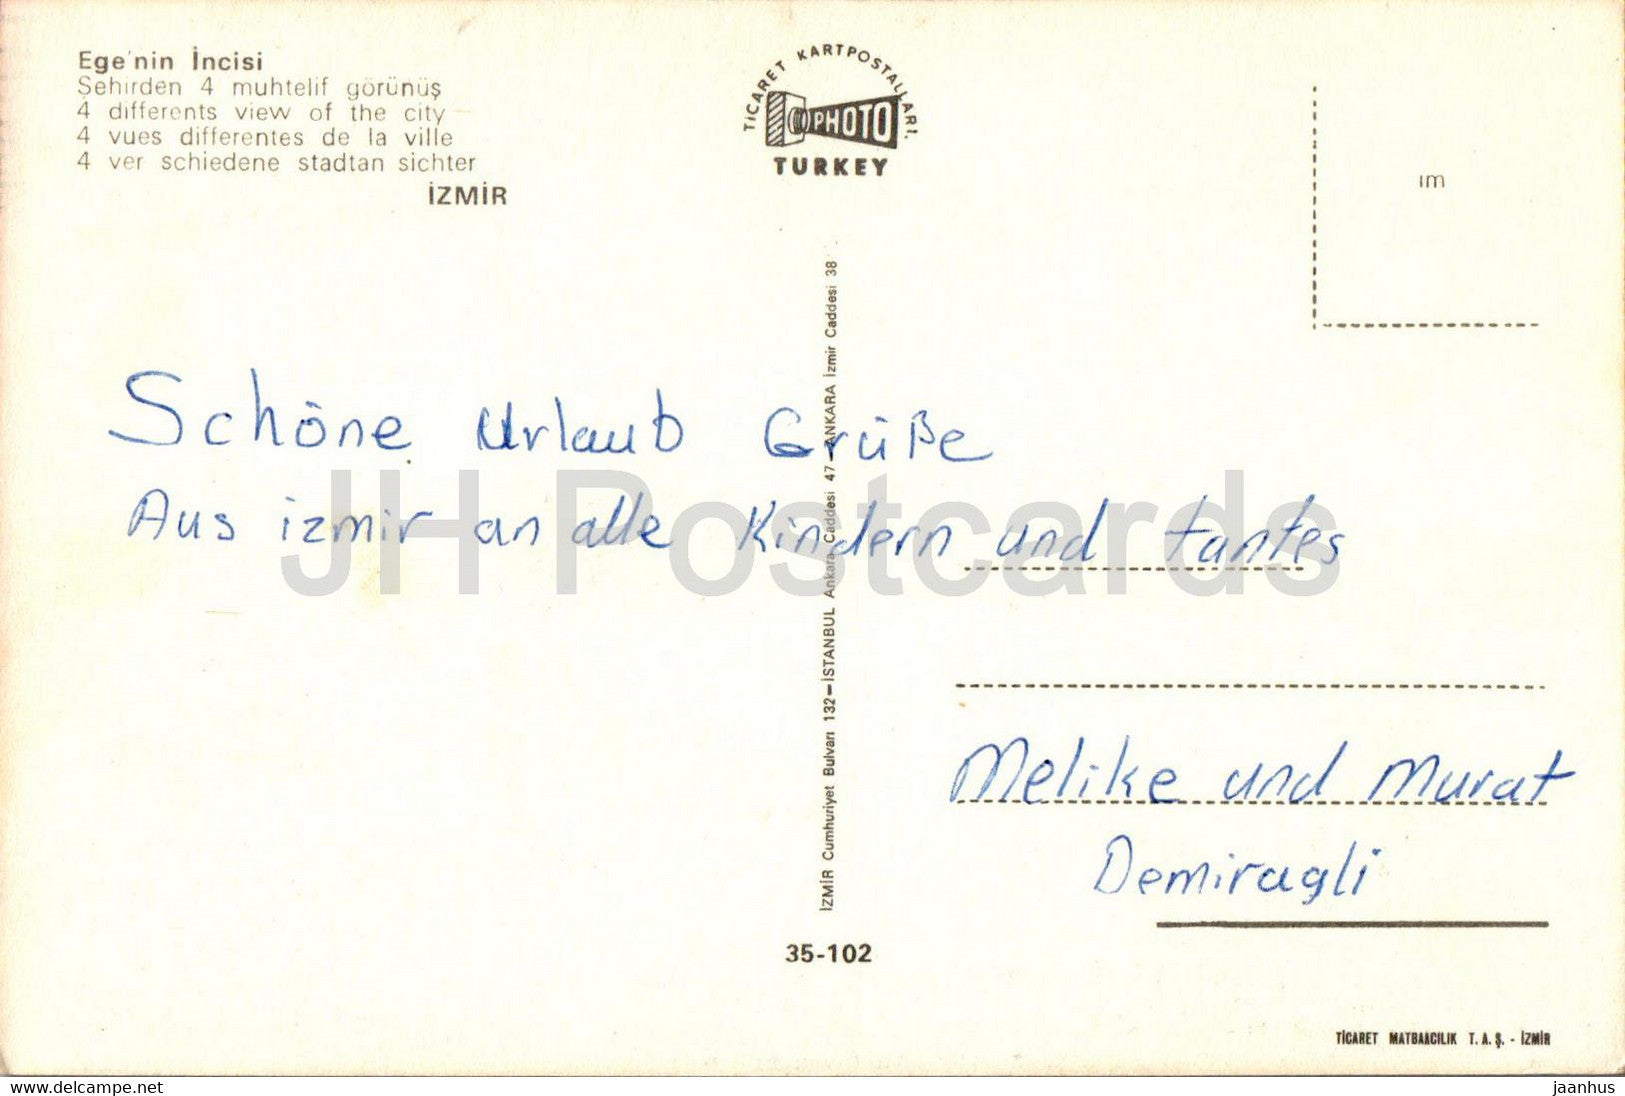 Ege'nin İncisi
Şehirden 4 muhtelif görünüş
4 differents view of the city
4 vues differentes de la ville
4 ver schiedene stadtan sichter
İZMİR
TİCARET KARTPOSTALLARI.
PHOTO
TURKEY
ım
Schöne Urlaub Grüße
Aus izmir an alle Kindern und tantes
Melike und Murat
Demiragli
İZMİR Cumhuriyet Bulvarı 132–İSTANBUL Ankara Caddesi 47–ANKARA İzmir Caddesi 38
35-102
TİCARET MATBAACILIK T.A.Ş. - İZMİR
JH Postcards
www.delcampe.net
jaanhus